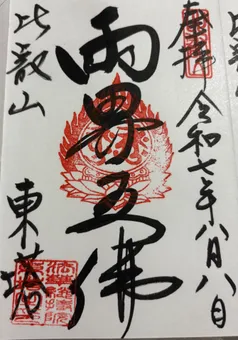 奉拝 令和七年八月八日
両界五佛
比叡山 東塔